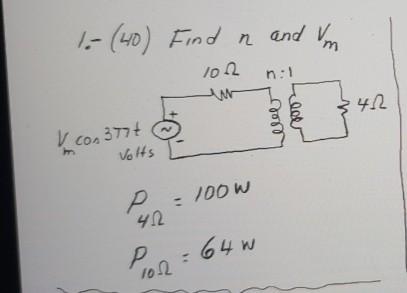 1.- (40) Find n and Vm
10Ω n:1
4Ω
+
Vm cos 377t
-
Volts
P4Ω = 100 W
P10Ω = 64 W